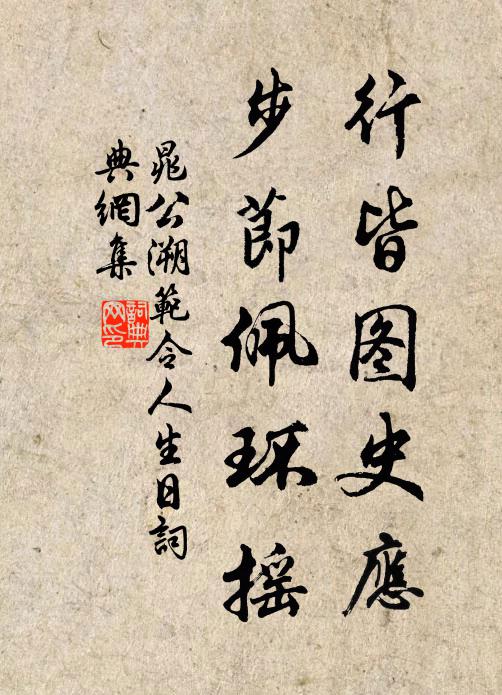 行皆图史應
步節佩环摇
晁公溯範令人生日詞
典網集
詞典
网印